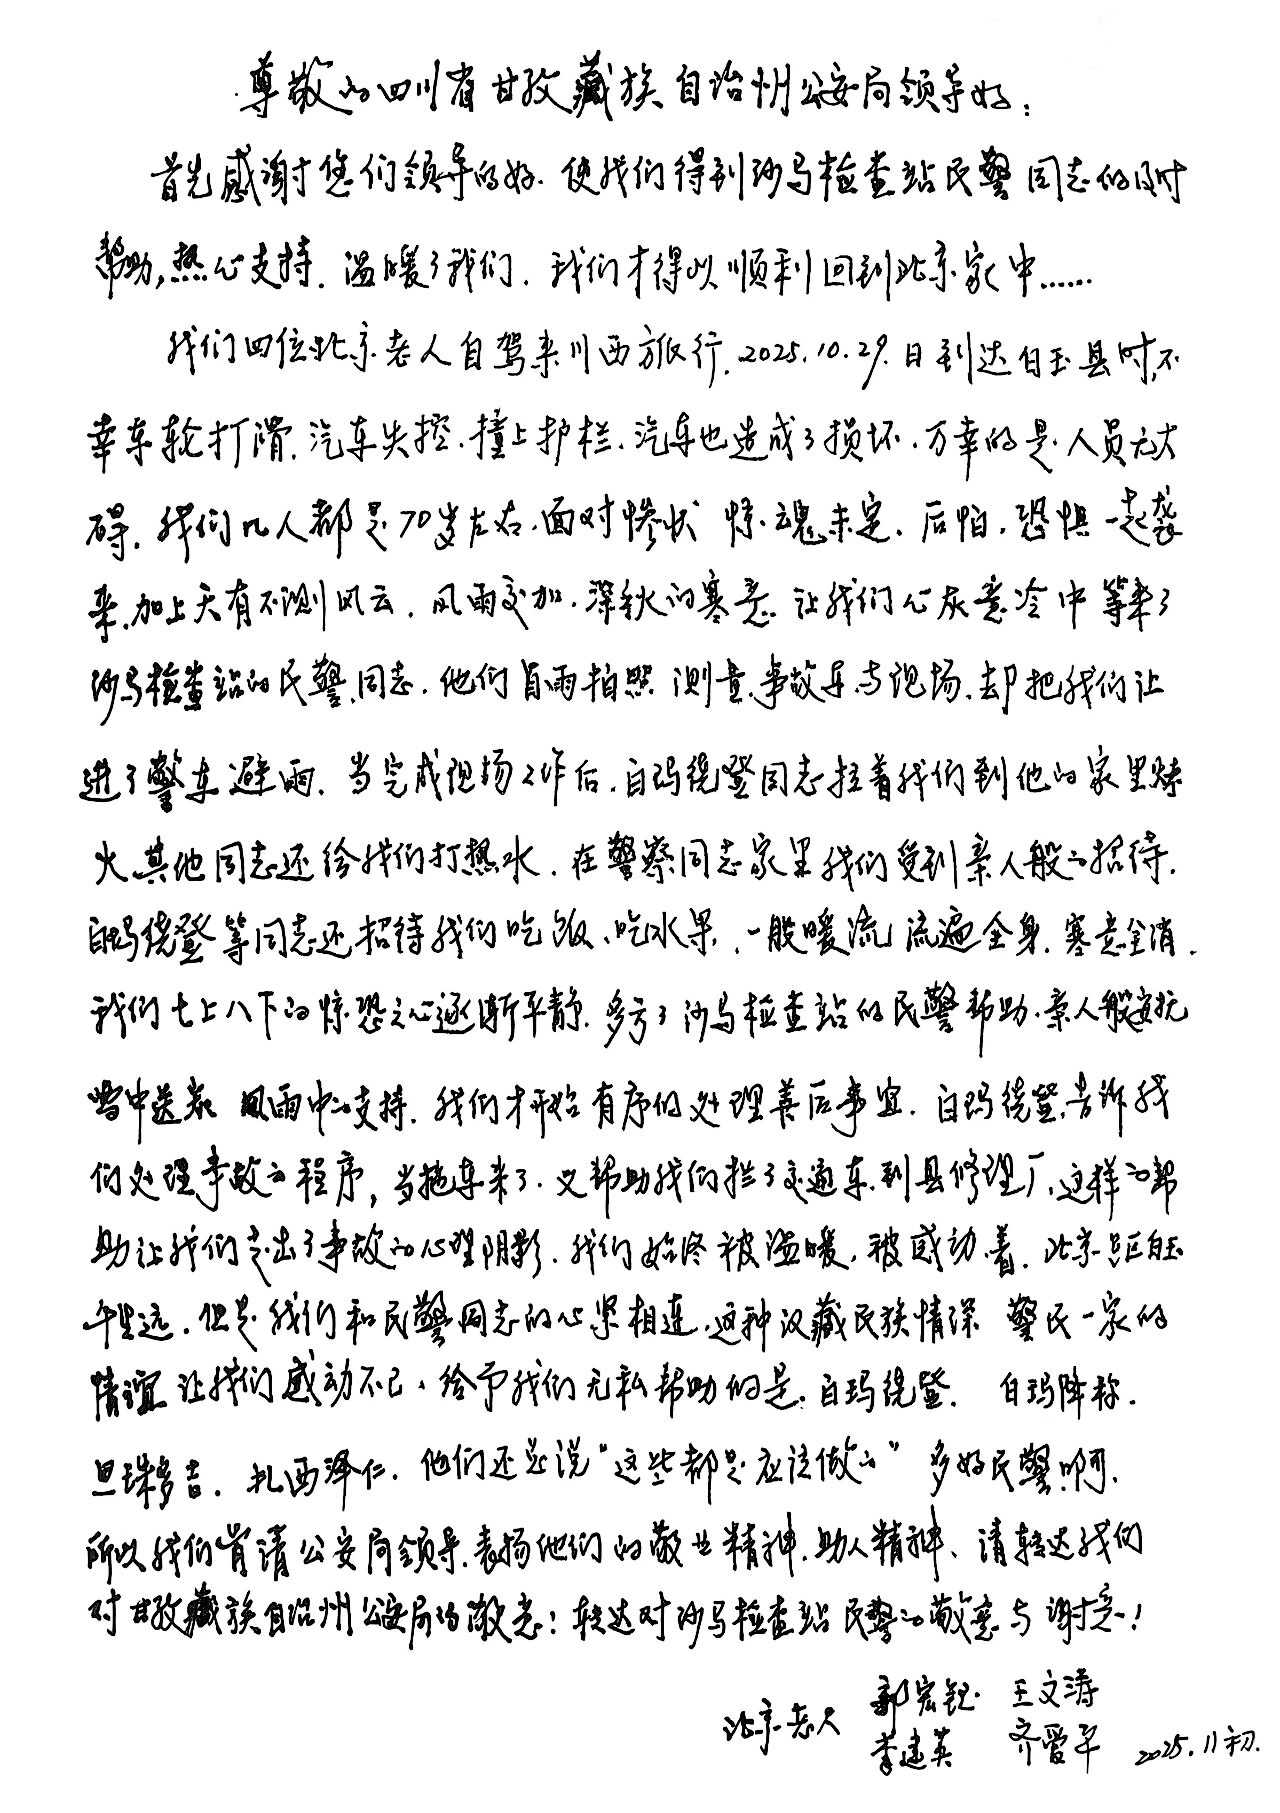 尊敬的四川省甘孜藏族自治州公安局领导好:
首先感谢您们领导的好.使我们得到沙马检查站民警同志的及时
帮助,热心支持.温暖了我们.我们才得以顺利回到北京家中……
我们四位北京老人自驾来川西旅行.2025.10.29.日到达白玉县时,不
幸车轮打滑.汽车失控.撞上护栏.汽车也造成了损坏.万幸的是人员无大
碍.我们几人都是70岁左右.面对惨状 惊魂未定.后怕.恐惧一起袭
来.加上天有不测风云.风雨交加.深秋的寒意 让我们心灰意冷中等来了
沙马检查站的民警同志.他们冒雨拍照 测量.事故车与现场.却把我们让
进了警车避雨.当完成现场工作后.白玛绕登同志拉着我们到他的家里烤
火.其他同志还给我们打热水.在警察同志家里我们受到亲人般的招待.
白玛绕登等同志还招待我们吃饭、吃水果,一股暖流 流遍全身.寒意全消.
我们七上八下的惊恐之心逐渐平静.多亏了沙马检查站的民警帮助.亲人般安抚
雪中送炭 风雨中的支持.我们才开始有序的处理善后事宜.白玛绕登.告诉我
们处理事故的程序,当拖车来了.又帮助我们拦了交通车.到县修理厂.这样的帮
助让我们走出了事故的心理阴影.我们始终被温暖.被感动着.北京距白玉
千里远.但是我们和民警同志的心紧相连.这种汉藏民族情深 警民一家的
情谊 让我们感动不已.给予我们无私帮助的是.白玛绕登. 白玛降称.
旦珠多吉.扎西泽仁.他们还总说“这些都是应该做的”多好民警啊.
所以我们肯请公安局领导.表扬他们的敬业精神.助人精神、请转达我们
对甘孜藏族自治州公安局的敬意!转达对沙马检查站民警的敬意与谢意!
北京老人 郭宏钰 王文涛
李建英 齐爱平 2025.11初.